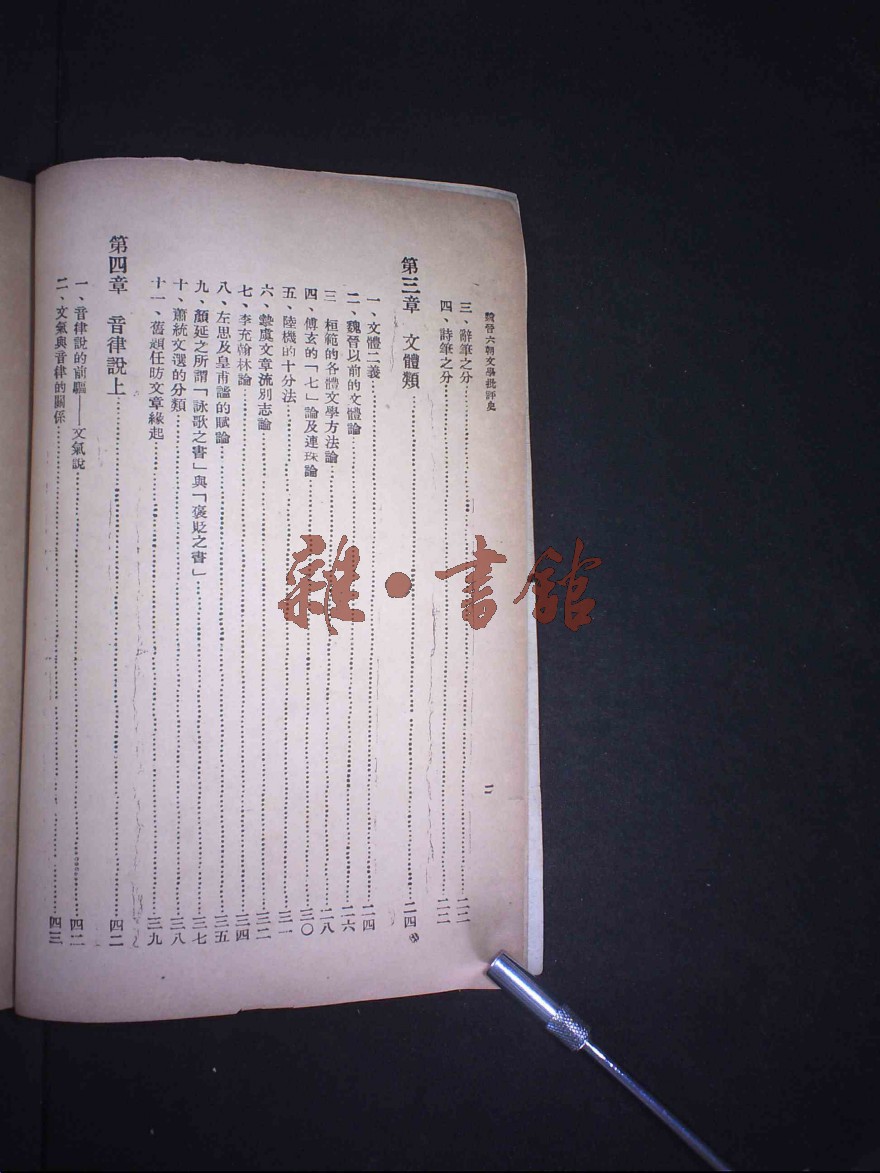 魏晉六朝文學批評史
二
三、辭筆之分……二二
四、詩筆之分……二二
第三章 文體類……二四
一、文體二義……二四
二、魏晉以前的文體論……二六
三 桓範的各體文學方法論……二八
四、傅玄的「七」論及連珠論……三〇
五、陸機的十分法……三一
六、摯虞文章流別志論……三二
七、李充翰林論……三四
八、左思及皇甫謐的賦論……三五
九、顏延之所謂「詠歌之書」與「褒貶之書」……三七
十、蕭統文選的分類……三八
十一、舊題任昉文章緣起……三九
第四章 音律說上……四二
一、音律說的前驅——文氣說……四二
二、文氣與音律的關係……四三
雜·書館